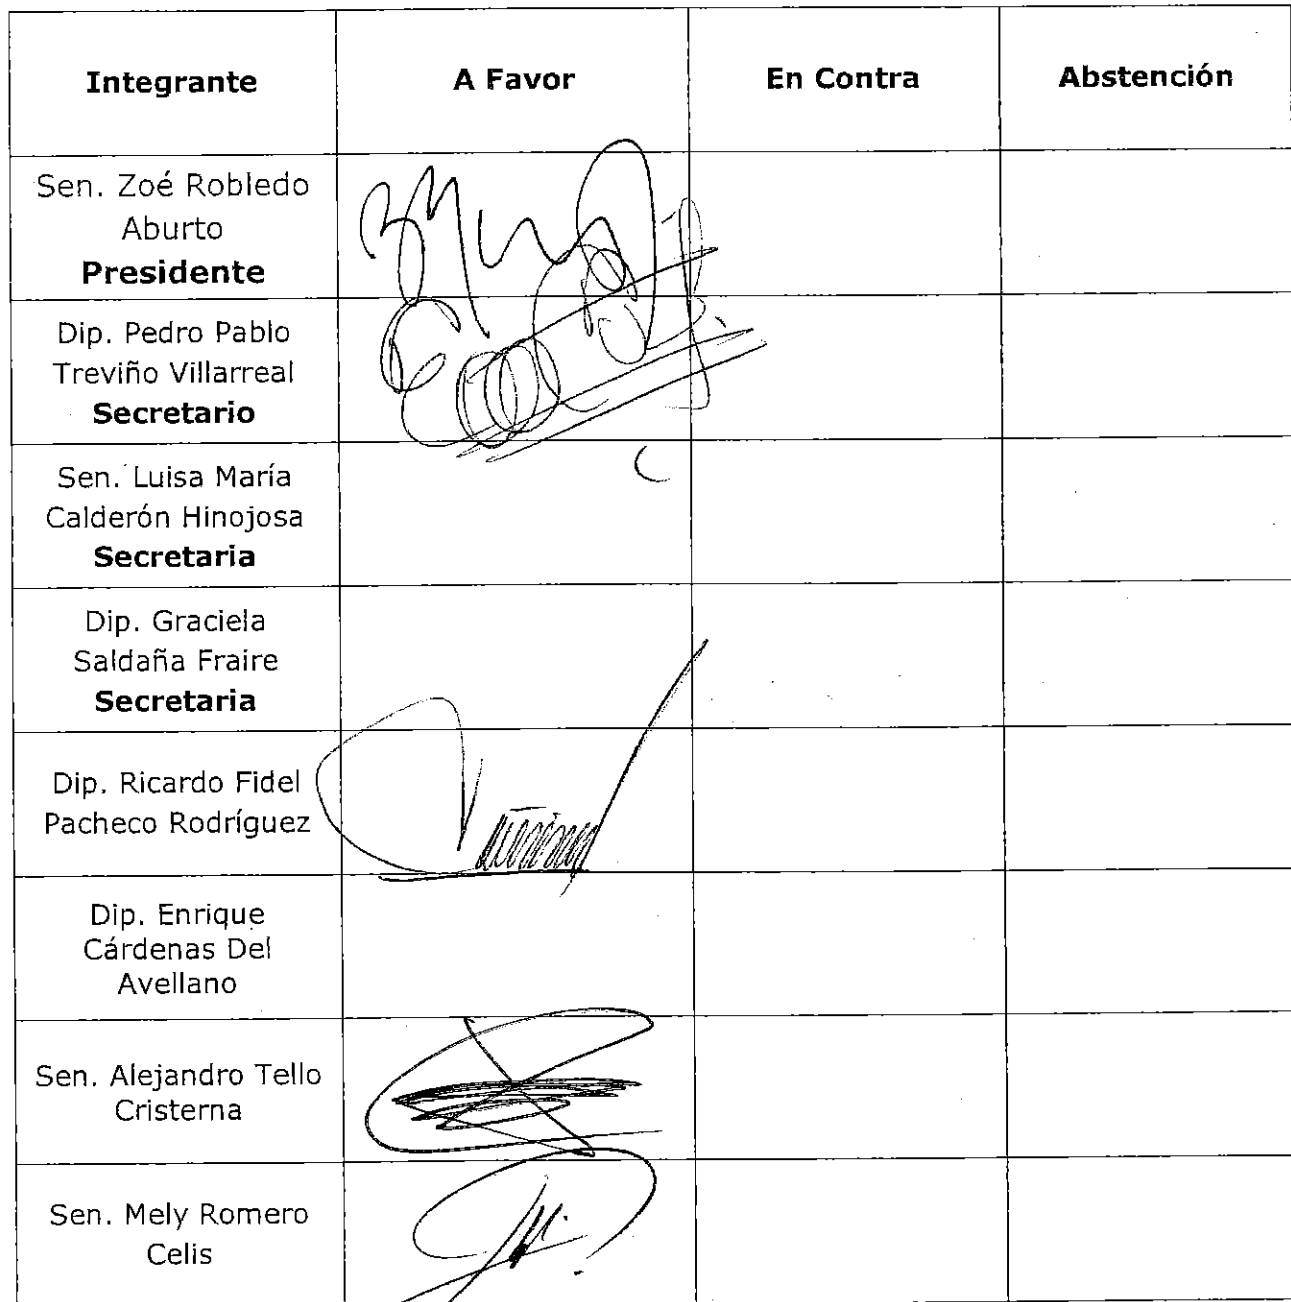 Integrante A Favor En Contra Abstención
Sen. Zoé Robledo
Aburto
Presidente
Dip. Pedro Pablo
Treviño Villarreal
Secretario
Sen. Luisa María
Calderón Hinojosa
Secretaria
Dip. Graciela
Saldaña Fraire
Secretaria
Dip. Ricardo Fidel
Pacheco Rodríguez
Dip. Enrique
Cárdenas Del
Avellano
Sen. Alejandro Tello
Cristerna
Sen. Mely Romero
Celis